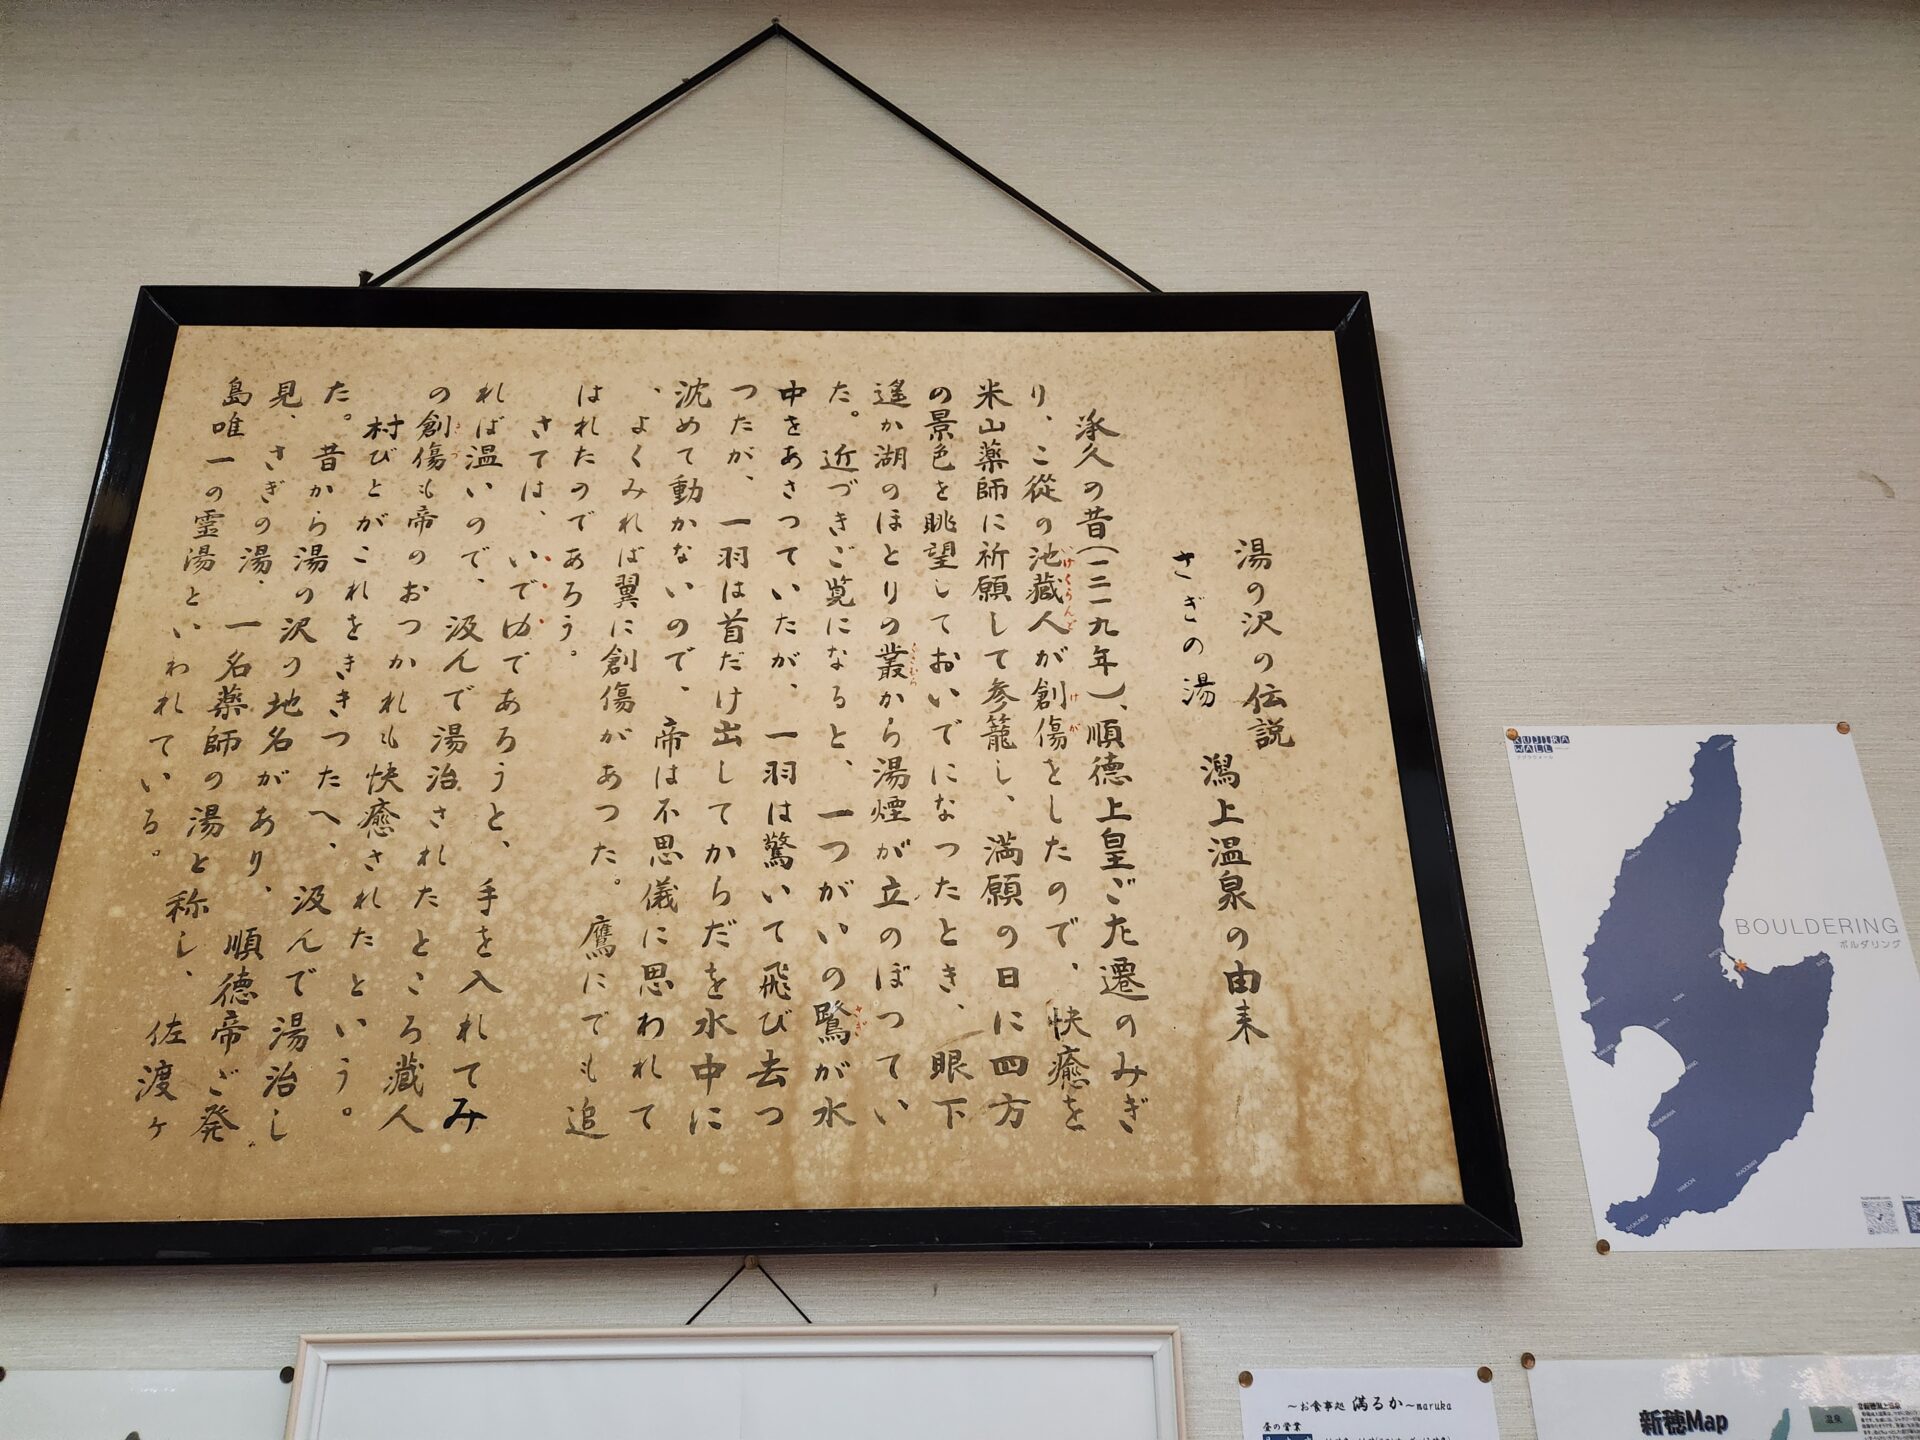 湯の沢の伝説
さぎの湯　潟上温泉の由来
承久の昔(一二一九年)、順徳上皇ご左遷のみぎ
り、こ従の池蔵人が創傷としたので、快癒を
けくらんど
けが
米山薬師に祈願して参籠し、満願の日に四方
の景色を眺望しておいでになったとき、眼下
遥か湖のほとりの叢から湯煙が立のぼってい
くさむら
た。近づきご覧になると、一つがいの鷺が水
さぎ
中をあさっていたが、一羽は驚いて飛び去つ
つたが、一羽は首だけ出してからだを水中に
沈めて動かないので、帝は不思儀に思われて
、よくみれば翼に創傷があった。鷹にでも追
はれたのであろう。
さては、いでゆであろうと、手を入れてみ
れば温いので、汲んで湯治されたところ蔵人
の創傷も帝のおつかれも快癒されたという。
きづ
村びとがこれをききつたへ、汲んで湯治し
た。昔から湯の沢の地名があり、順徳帝ご発
見、さぎの湯、一名薬師の湯と称し、佐渡ヶ
島唯一の霊湯といわれている。
KUJIRA
WALL
クジラウォール
BOULDERING
ボルダリング
～お食事処 満るか～maruka
昼の営業
新穂Map
温泉